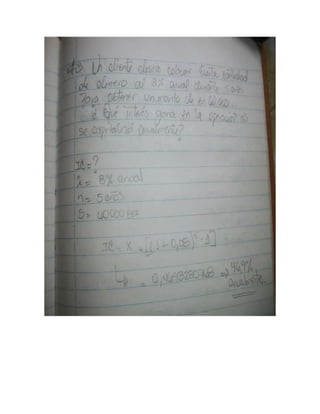 Un cliente desea colocar cierta cantidad
de dinero al 8% anual durante 5 años
para obtener un monto de
¿Que interés gana en la operación si
se capitaliza anualmente?
IC = ?
i = 8% anual
n = 5 años
S =
IC = x · [(1 + 0,08)^5 - 1]
= 0,4693280768 => 46,9%